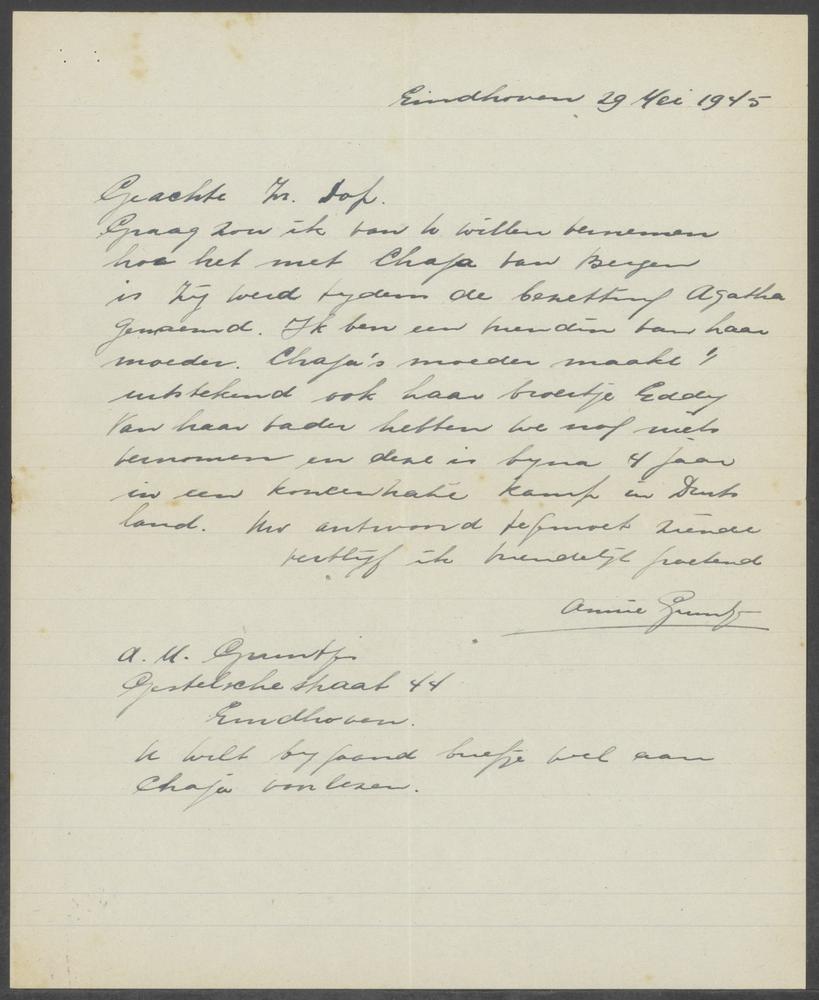 Eindhoven 29 Mei 1945
Geachte Zr. Dop.
Graag zou ik van U willen vernemen
hoe het met Chaja van Bergen
is Zij werd tydens de bezetting Agatha
genaemd. Ik ben een vriendin van haar
moeder. Chaja's moeder maakt 't
uitstekend ook haar broertje Eddy
Van haar vader hebben we nog niets
vernomen en deze is byna 4 jaar
in een koncentratie kamp in Duits
land. Uw antwoord tegemoet ziende
verblyf ik vriendelijk groetend
Annie
A. M.
Gestelsche straat 44
Eindhoven.
U wilt bygaand briefje wel aan
Chaja voorlezen.